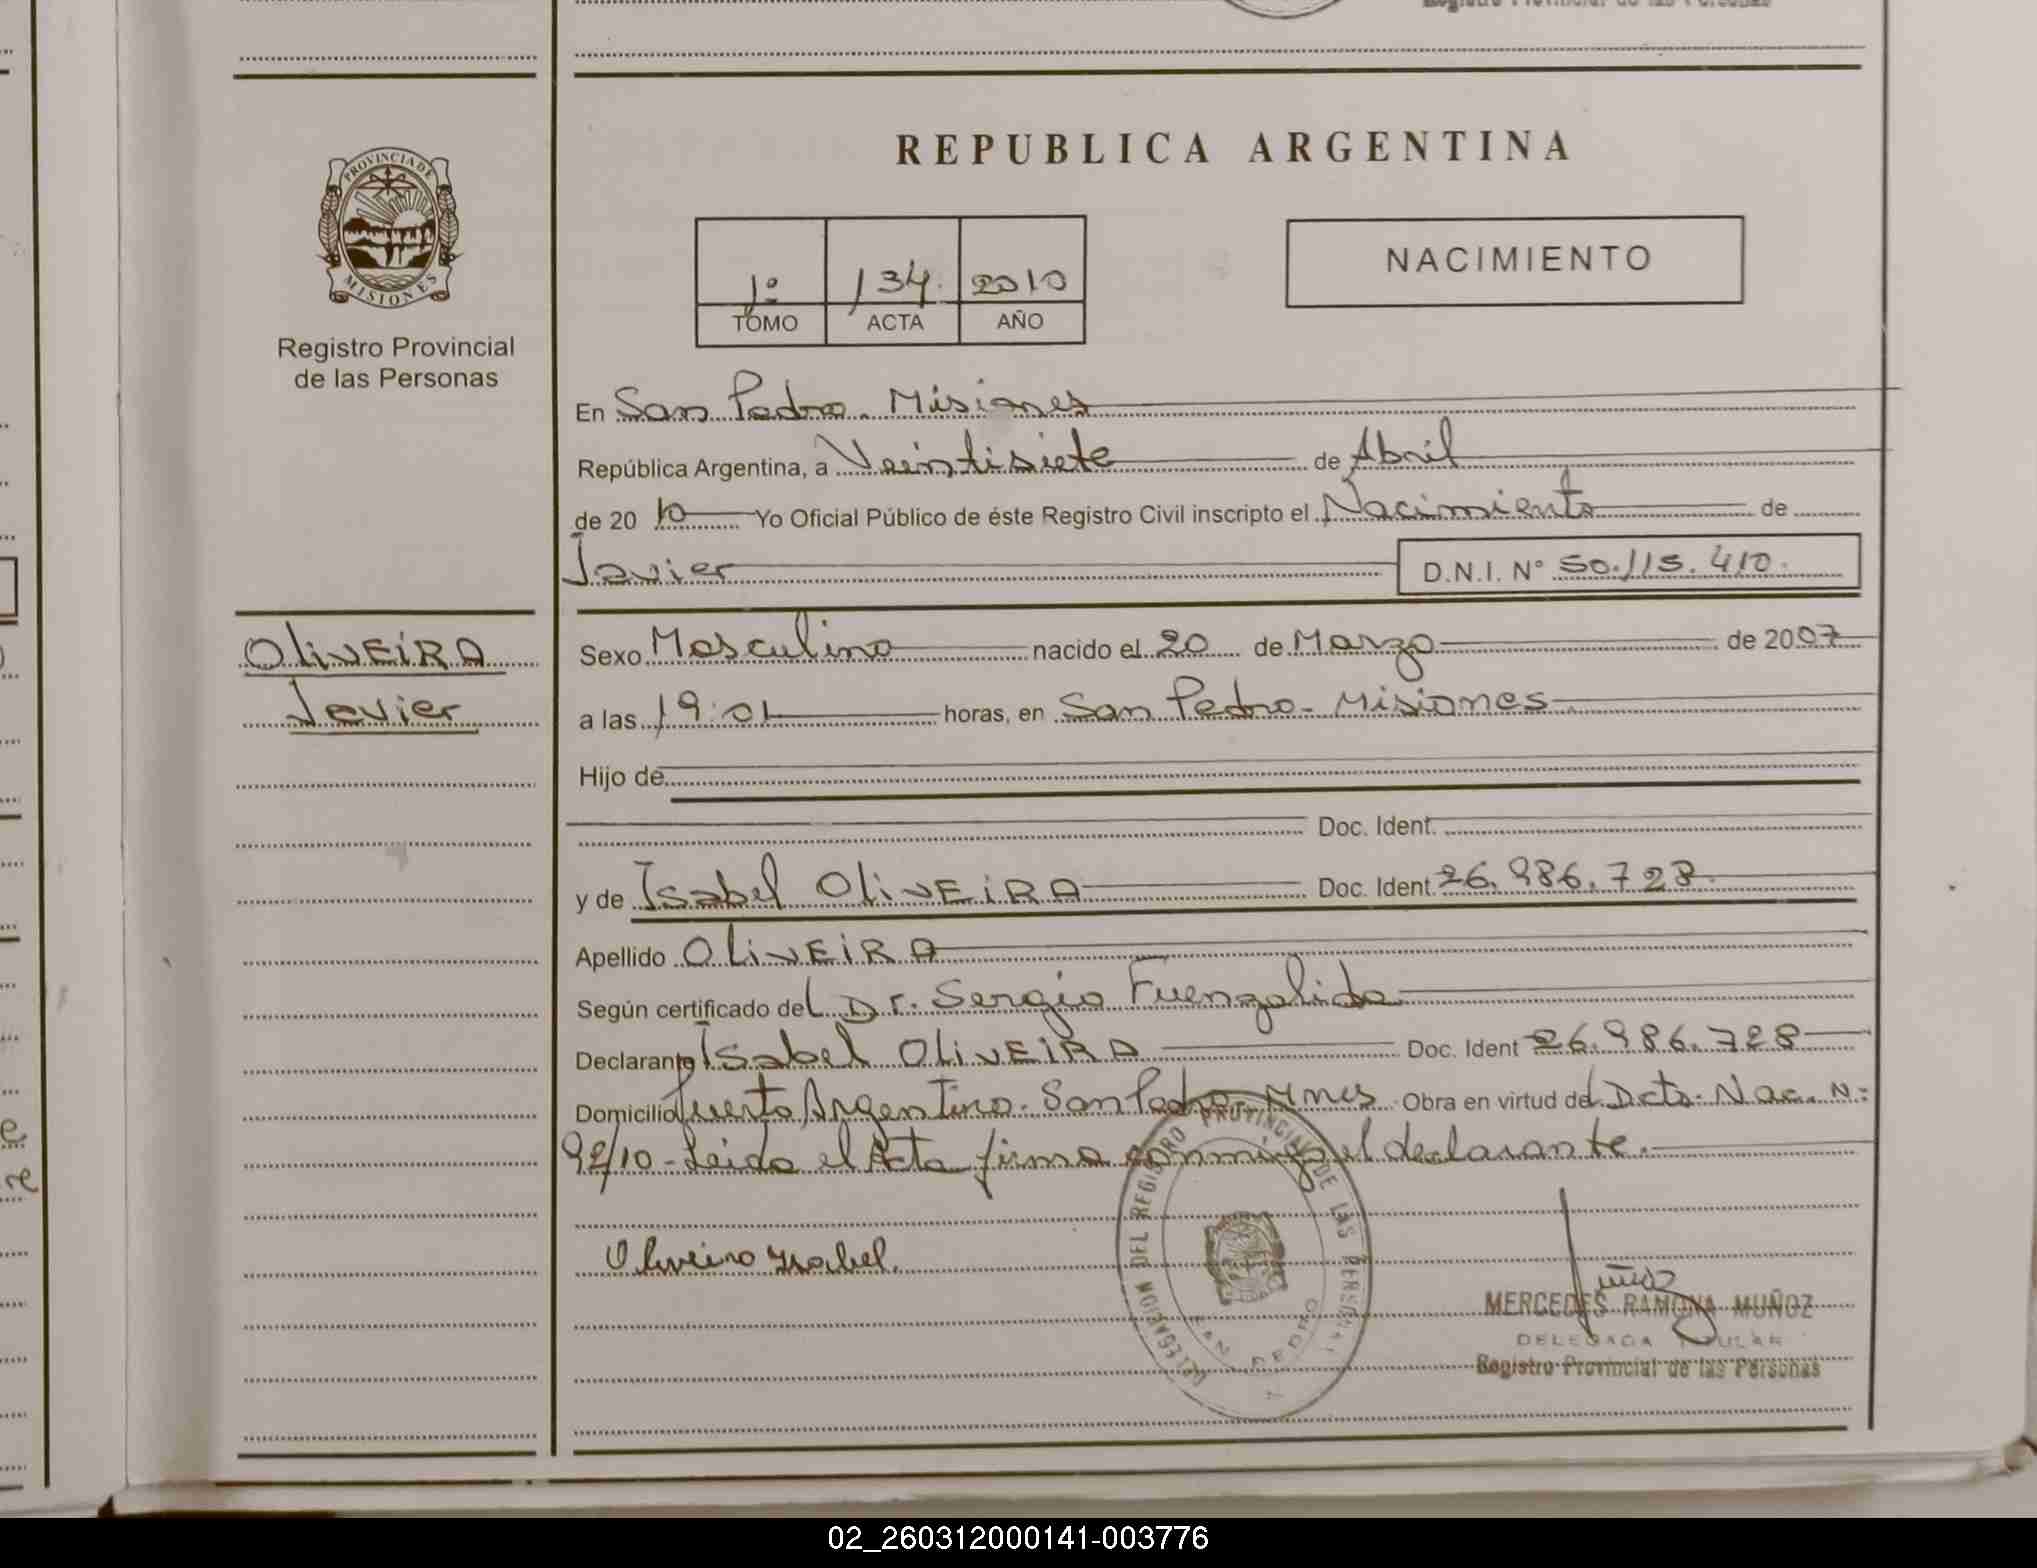 Registro Provincial de las Personas
REPUBLICA ARGENTINA
PROVINCIA DE
MISIONES
Registro Provincial
de las Personas
1º 134. 2010
TOMO ACTA AÑO
NACIMIENTO
En San Pedro. Misiones
República Argentina, a Veintisiete de Abril
de 2010 Yo Oficial Público de éste Registro Civil inscripto el Nacimiento de
Javier D.N.I. N° 50.115.410.
OLIVEIRA
Javier
Sexo Masculino nacido el 20 de Marzo de 2007
a las 19:01 horas, en San Pedro- Misiones
Hijo de
Doc. Ident.
y de Isabel OLIVEIRA Doc. Ident. 26.986.728
Apellido OLIVEIRA
Según certificado del Dr. Sergio Fuenzalida
Declarante Isabel OLIVEIRA Doc. Ident 26.986.728
Domicilio Puerto Argentino. San Pedro- Mnes Obra en virtud del Dcto. Nac. N:
92/10 - Leida el Acta firma conmigo el declarante.
Oliveira Isabel.
DELEGACION DEL REGISTRO PROVINCIAL DE LAS PERSONAS
SAN PEDRO
Muñoz
MERCEDES RAMONA MUÑOZ
DELEGADA TITULAR
Registro Provincial de las Personas
02_260312000141-003776